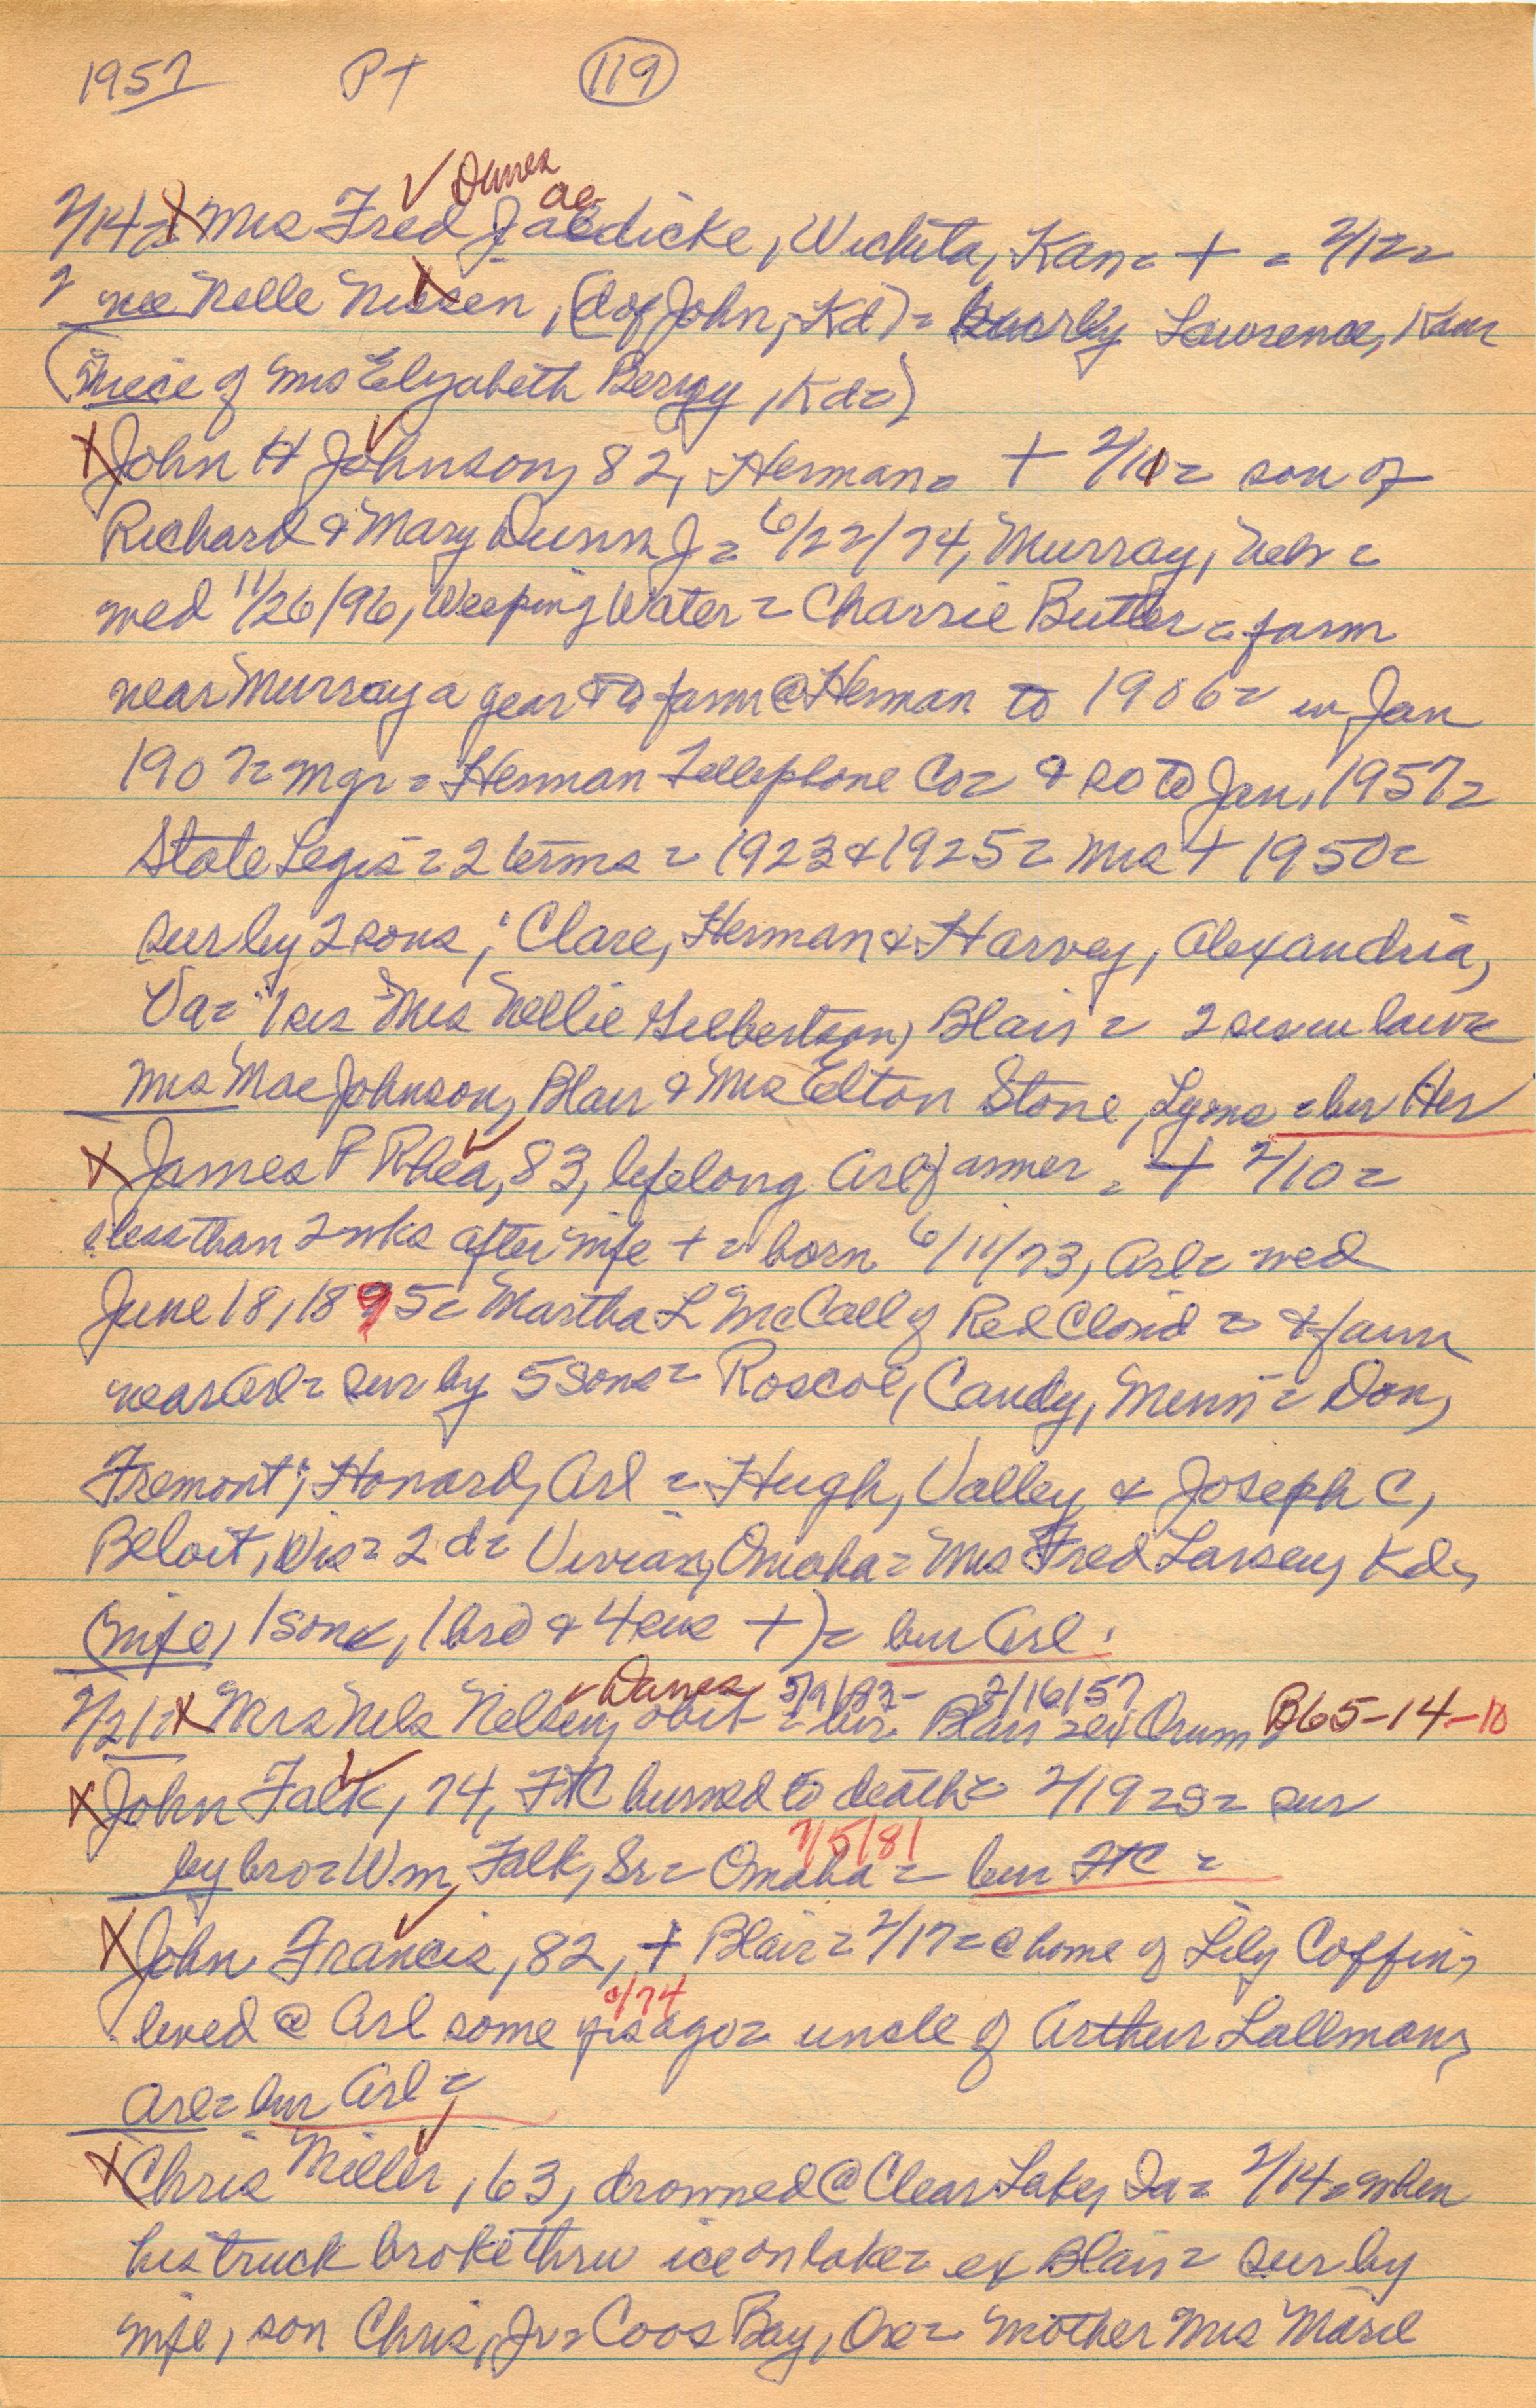 1957 Pt 119
✓ Dunes
ae
2/14= X Mrs Fred Jaedicke, Wichita, Kan= + = 2/12=
2 nee Nelle Nissen, (d of John, Kd)= bur by Lawrence, Kan
(niece of Mrs Elizabeth Bergy, Kd=)
X John H Johnson, 82, Herman= + 2/10= son of
Richard & Mary Dunn J= 6/22/74, Murray, Neb=
wed 11/26/96, Weeping Water= Charsie Butler= farm
near Murray a year & to farm @ Herman to 1906= in Jan
1907= mgr= Herman Tellephone Co= & so to Jan, 1957=
State Legis= 2 terms= 1923 & 1925= Mrs + 1950=
sur by 2 sons; Clare, Herman & Harvey, Alexandria,
Va= 1 sis Mrs Nellie Gilbertson, Blair= 2 sis in law=
Mrs Mae Johnson, Blair & Mrs Elton Stone, Lyons= bur Her
X James P Rhea, 83, lifelong Arl farmer= + 2/10=
less than 2 wks after wife += born 6/11/73, Arl= wed
June 18, 1895= Martha L McCall of Red Cloud= & farm
near Arl= sur by 5 sons= Roscoe, Candy, Minn= Don,
Fremont; Howard, Arl= Hugh, Valley & Joseph C,
Beloit, Wis= 2 d= Vivian, Omaha= Mrs Fred Larsen, Kd,
(wife, 1 son, 1 bro & 4 sis +)= bur Arl.
✓ Danes 5/9/82- 2/16/57
2/21= X Mrs Nels Nelsen, obit= bur Blair= ex Orum B65-14-10
X John Falk, 74, FtC burned to death= 2/19= s= sur
7/5/81
by bro= Wm Falk, Sr= Omaha= bur FtC=
X John Francis, 82, + Blair= 2/17= @ home of Lily Coffin,
/74
lived @ Arl some yrs ago= uncle of Arthur Lallman,
Arl= bur Arl=
X Chris Miller, 63, drowned @ Clear Lake, Ia= 2/14= when
his truck broke thru ice on lake= ex Blair= sur by
wife, son Chris, Jr= Coos Bay, Ore= mother Mrs Marie